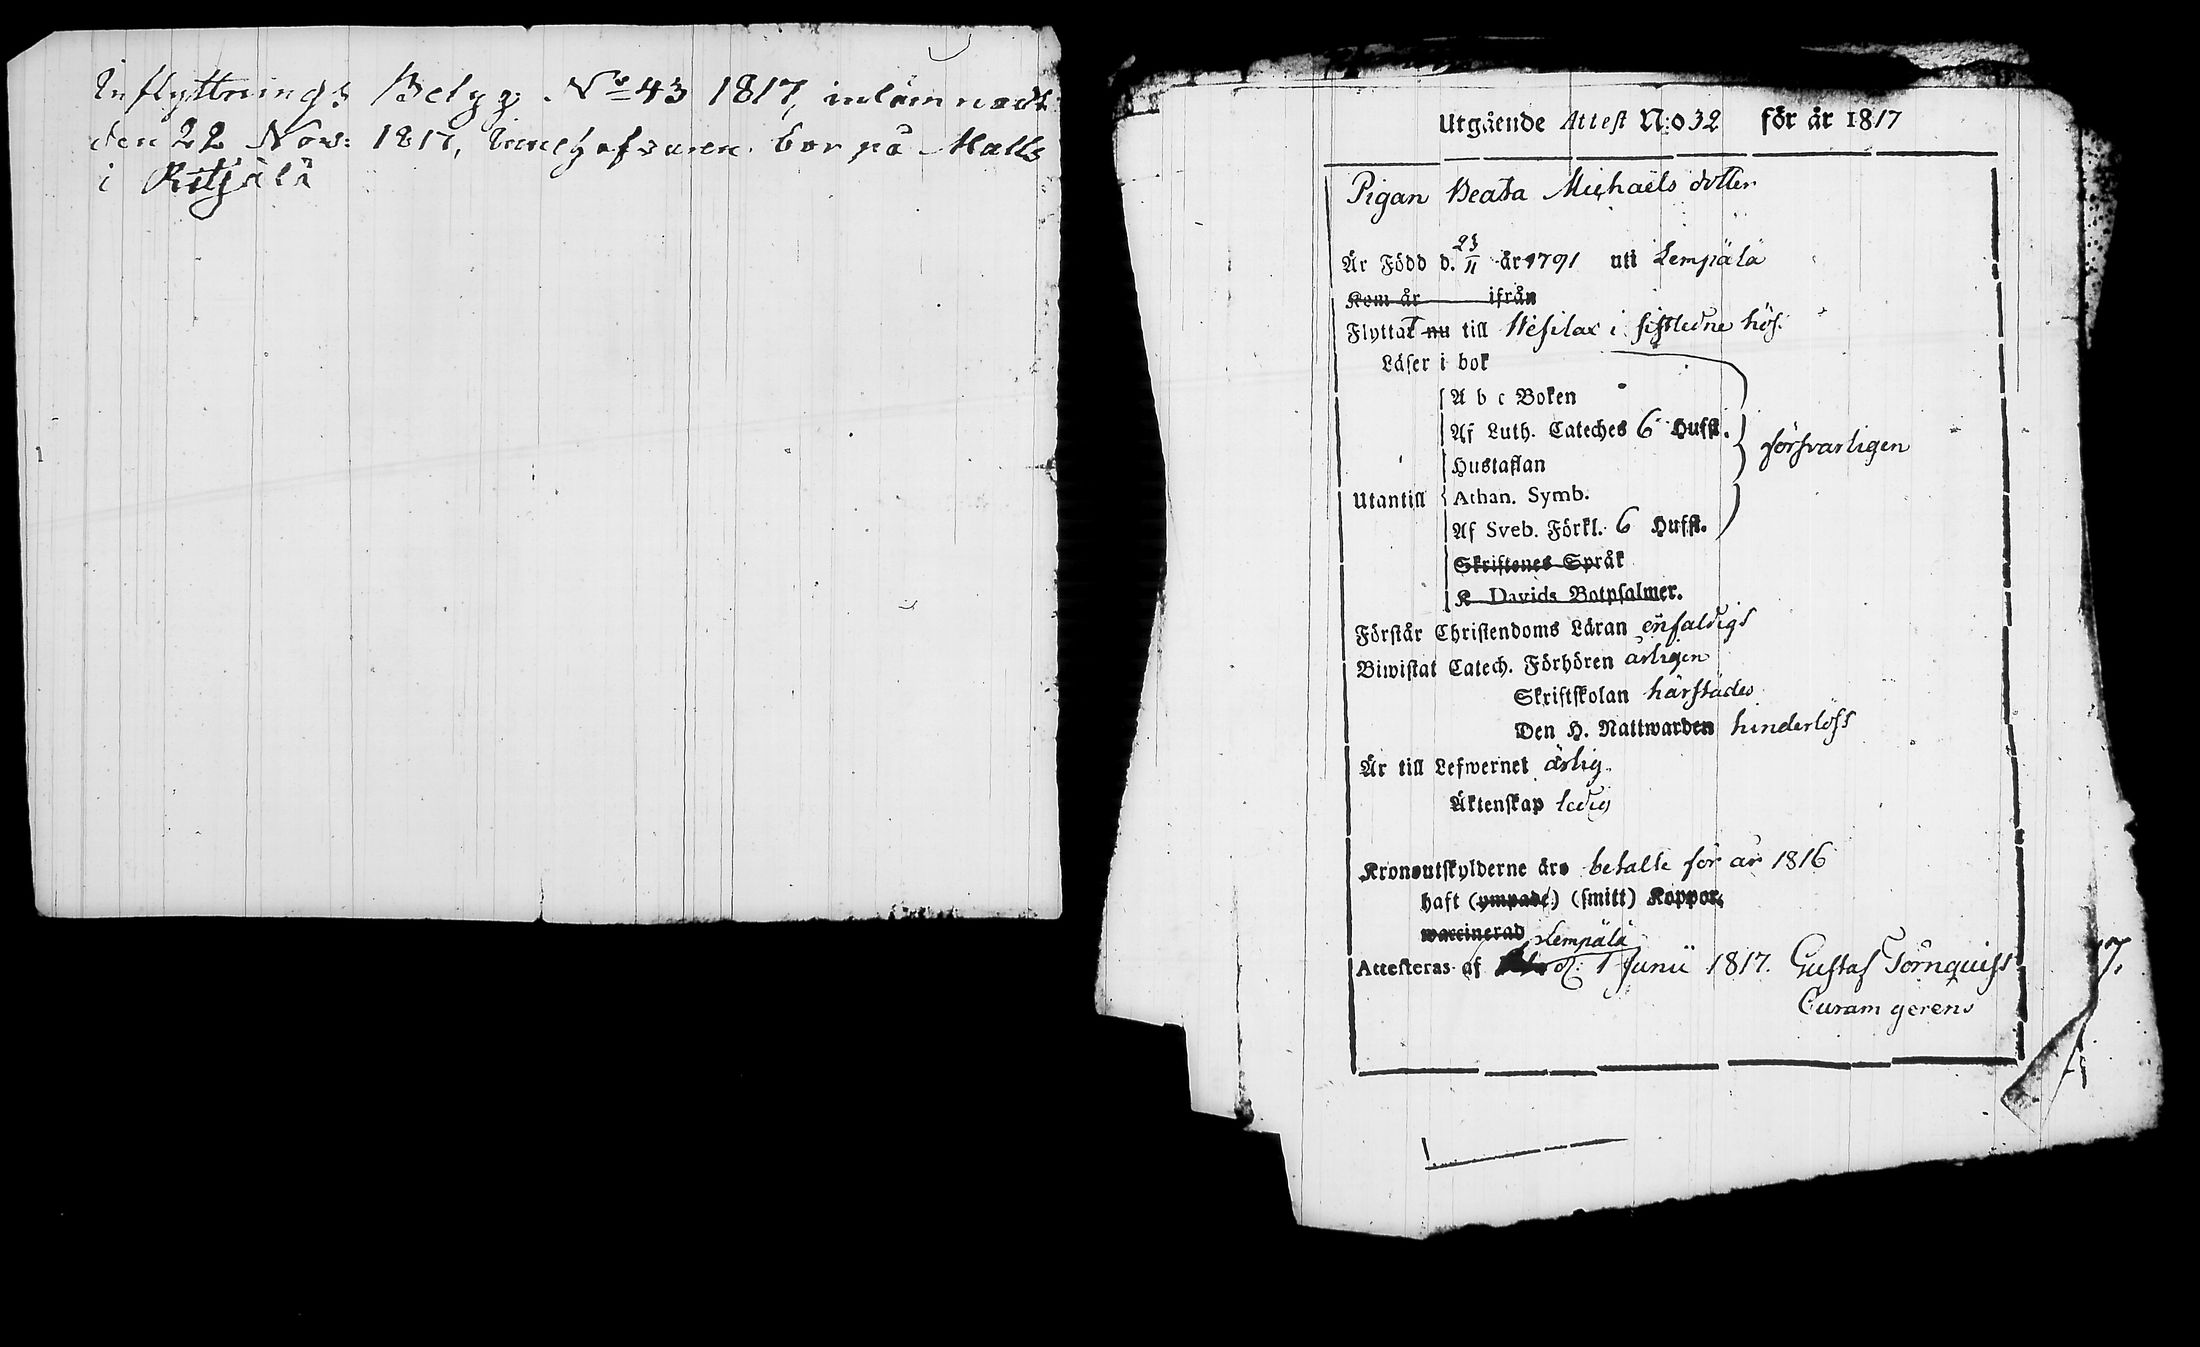 Inflyttnings Belgg. No 43 1817, inlämnadt
den 22 Nov: 1817, Innehafvaren bor på Matts
i
Utgående Attest N:o 32 för år 1817
Pigan Beata Michaels dotter
Är Född d. 23/11 år 1791 uti Lempälä
Kom år ifrån
Flyttat nu till Wesilax i sistledne hös.
Läser i bok
A b c Boken
Af Luth. Cateches 6 Hufst.
försvarligen
Hustaflan
Utantill Athan. Symb.
Af Sveb. Förkl. 6 Hufst.
Skriftenes Språk
K Davids Botpsalmer.
Förstår Christendoms Läran enfaldigt
Biwistat Catech. Förhören årligen
Skriftskolan härstädes
Den H. Nattwarden hinderlöst
Är till Lefwernet ärlig
Äktenskap ledig
Kronoutskylderne äro betalte för år 1816
haft (ympade) (smitt) Koppor.
waccinerad
Lempälä
Attesteras af d: 1 Junii 1817. Gustaf Törnquist
Curam gerens